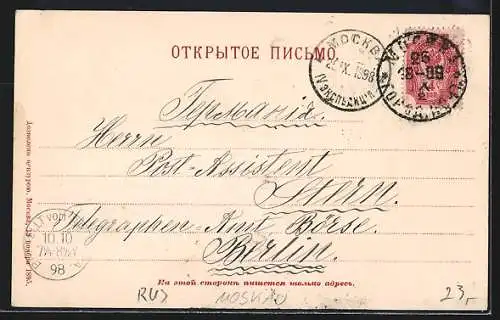 ОТКРЫТОЕ ПИСЬМО
МОСКВА
26 IX. 1898
IV ЭКСПЕДИЦІЯ
МОСКВА
26
IX
Германія.
Herrn
Post-Assistent
Stern.
Telegraphen-Amt Börse.
Berlin.
Дозволено цензурою. Москва,
vom
10.10
98
На этой сторонѣ пишется только адресъ.
RUS MOSKAU 23,-